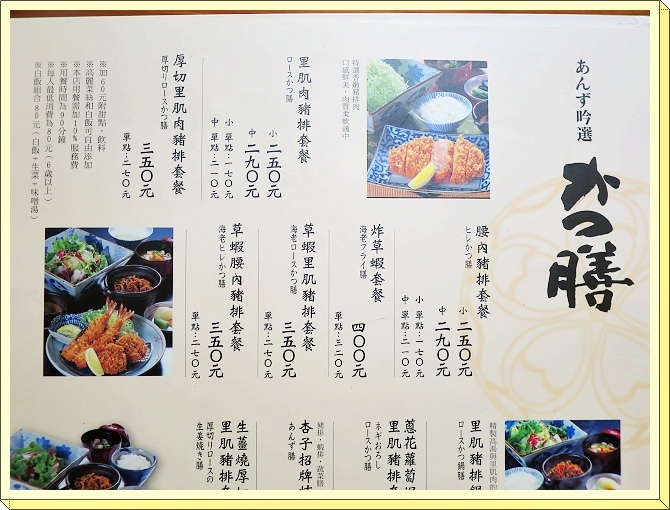 あんず吟選
かつ膳
特選香嫩豬排肉
口感鮮美，肉質柔軟適中
里肌肉豬排套餐
ロースかつ膳
小 二五〇元
中 二九〇元
小 單點：一七〇元
中 單點：二一〇元
厚切里肌肉豬排套餐
厚切りロースかつ膳
三五〇元
單點：二七〇元
※加60元附甜點、飲料
※高麗菜絲和白飯可自由添加
※本店用餐需加10%服務費
※用餐時間為90分鐘
※每人最低消費為80元（6歲以上）
※白飯組合80元（白飯+生菜+味噌湯）
腰內豬排套餐
ヒレかつ膳
小 二五〇元
中 二九〇元
小 單點：一七〇元
中 單點：二一〇元
炸草蝦套餐
海老フライ膳
四〇〇元
單點：三二〇元
草蝦里肌豬排套餐
海老ロースかつ膳
三五〇元
單點：二七〇元
草蝦腰內豬排套餐
海老ヒレかつ膳
三五〇元
單點：二七〇元
精製高湯與里肌肉的
里肌豬排鍋
ロースかつ鍋膳
蔥花蘿蔔泥
里肌豬排
ネギおろし
ロースかつ膳
豬排、蝦排、蔬菜
杏子招牌
あんず膳
生薑燒厚切
里肌豬排
厚切りロースの
生姜焼き膳